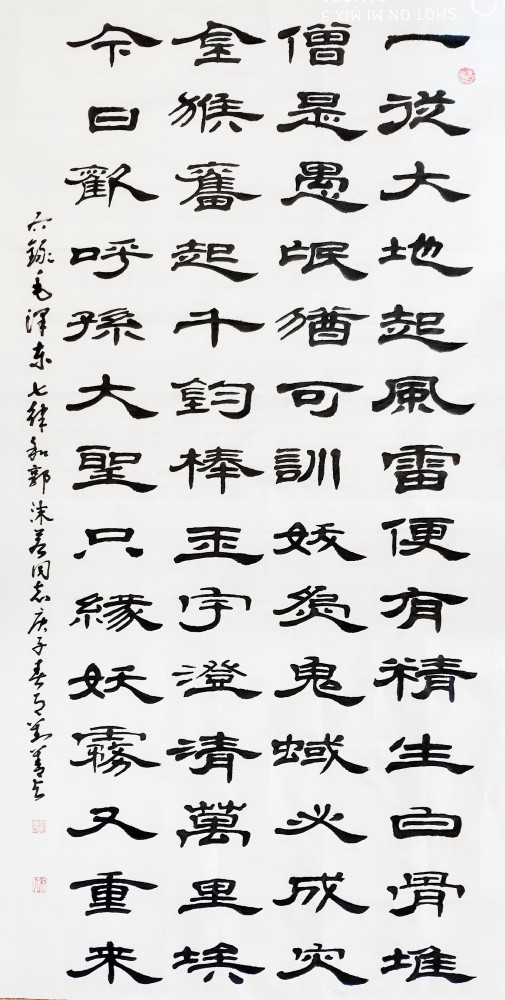 一從大地起風雷便有精生白骨堆
僧是愚氓猶可訓妖為鬼蜮必成灾
金猴奮起千鈞棒玉宇澄清萬里埃
今日歡呼孫大聖只緣妖霧又重来
右錄毛澤東七律和郭沫若同志庚子春月
SHOT ON MI MIX 3